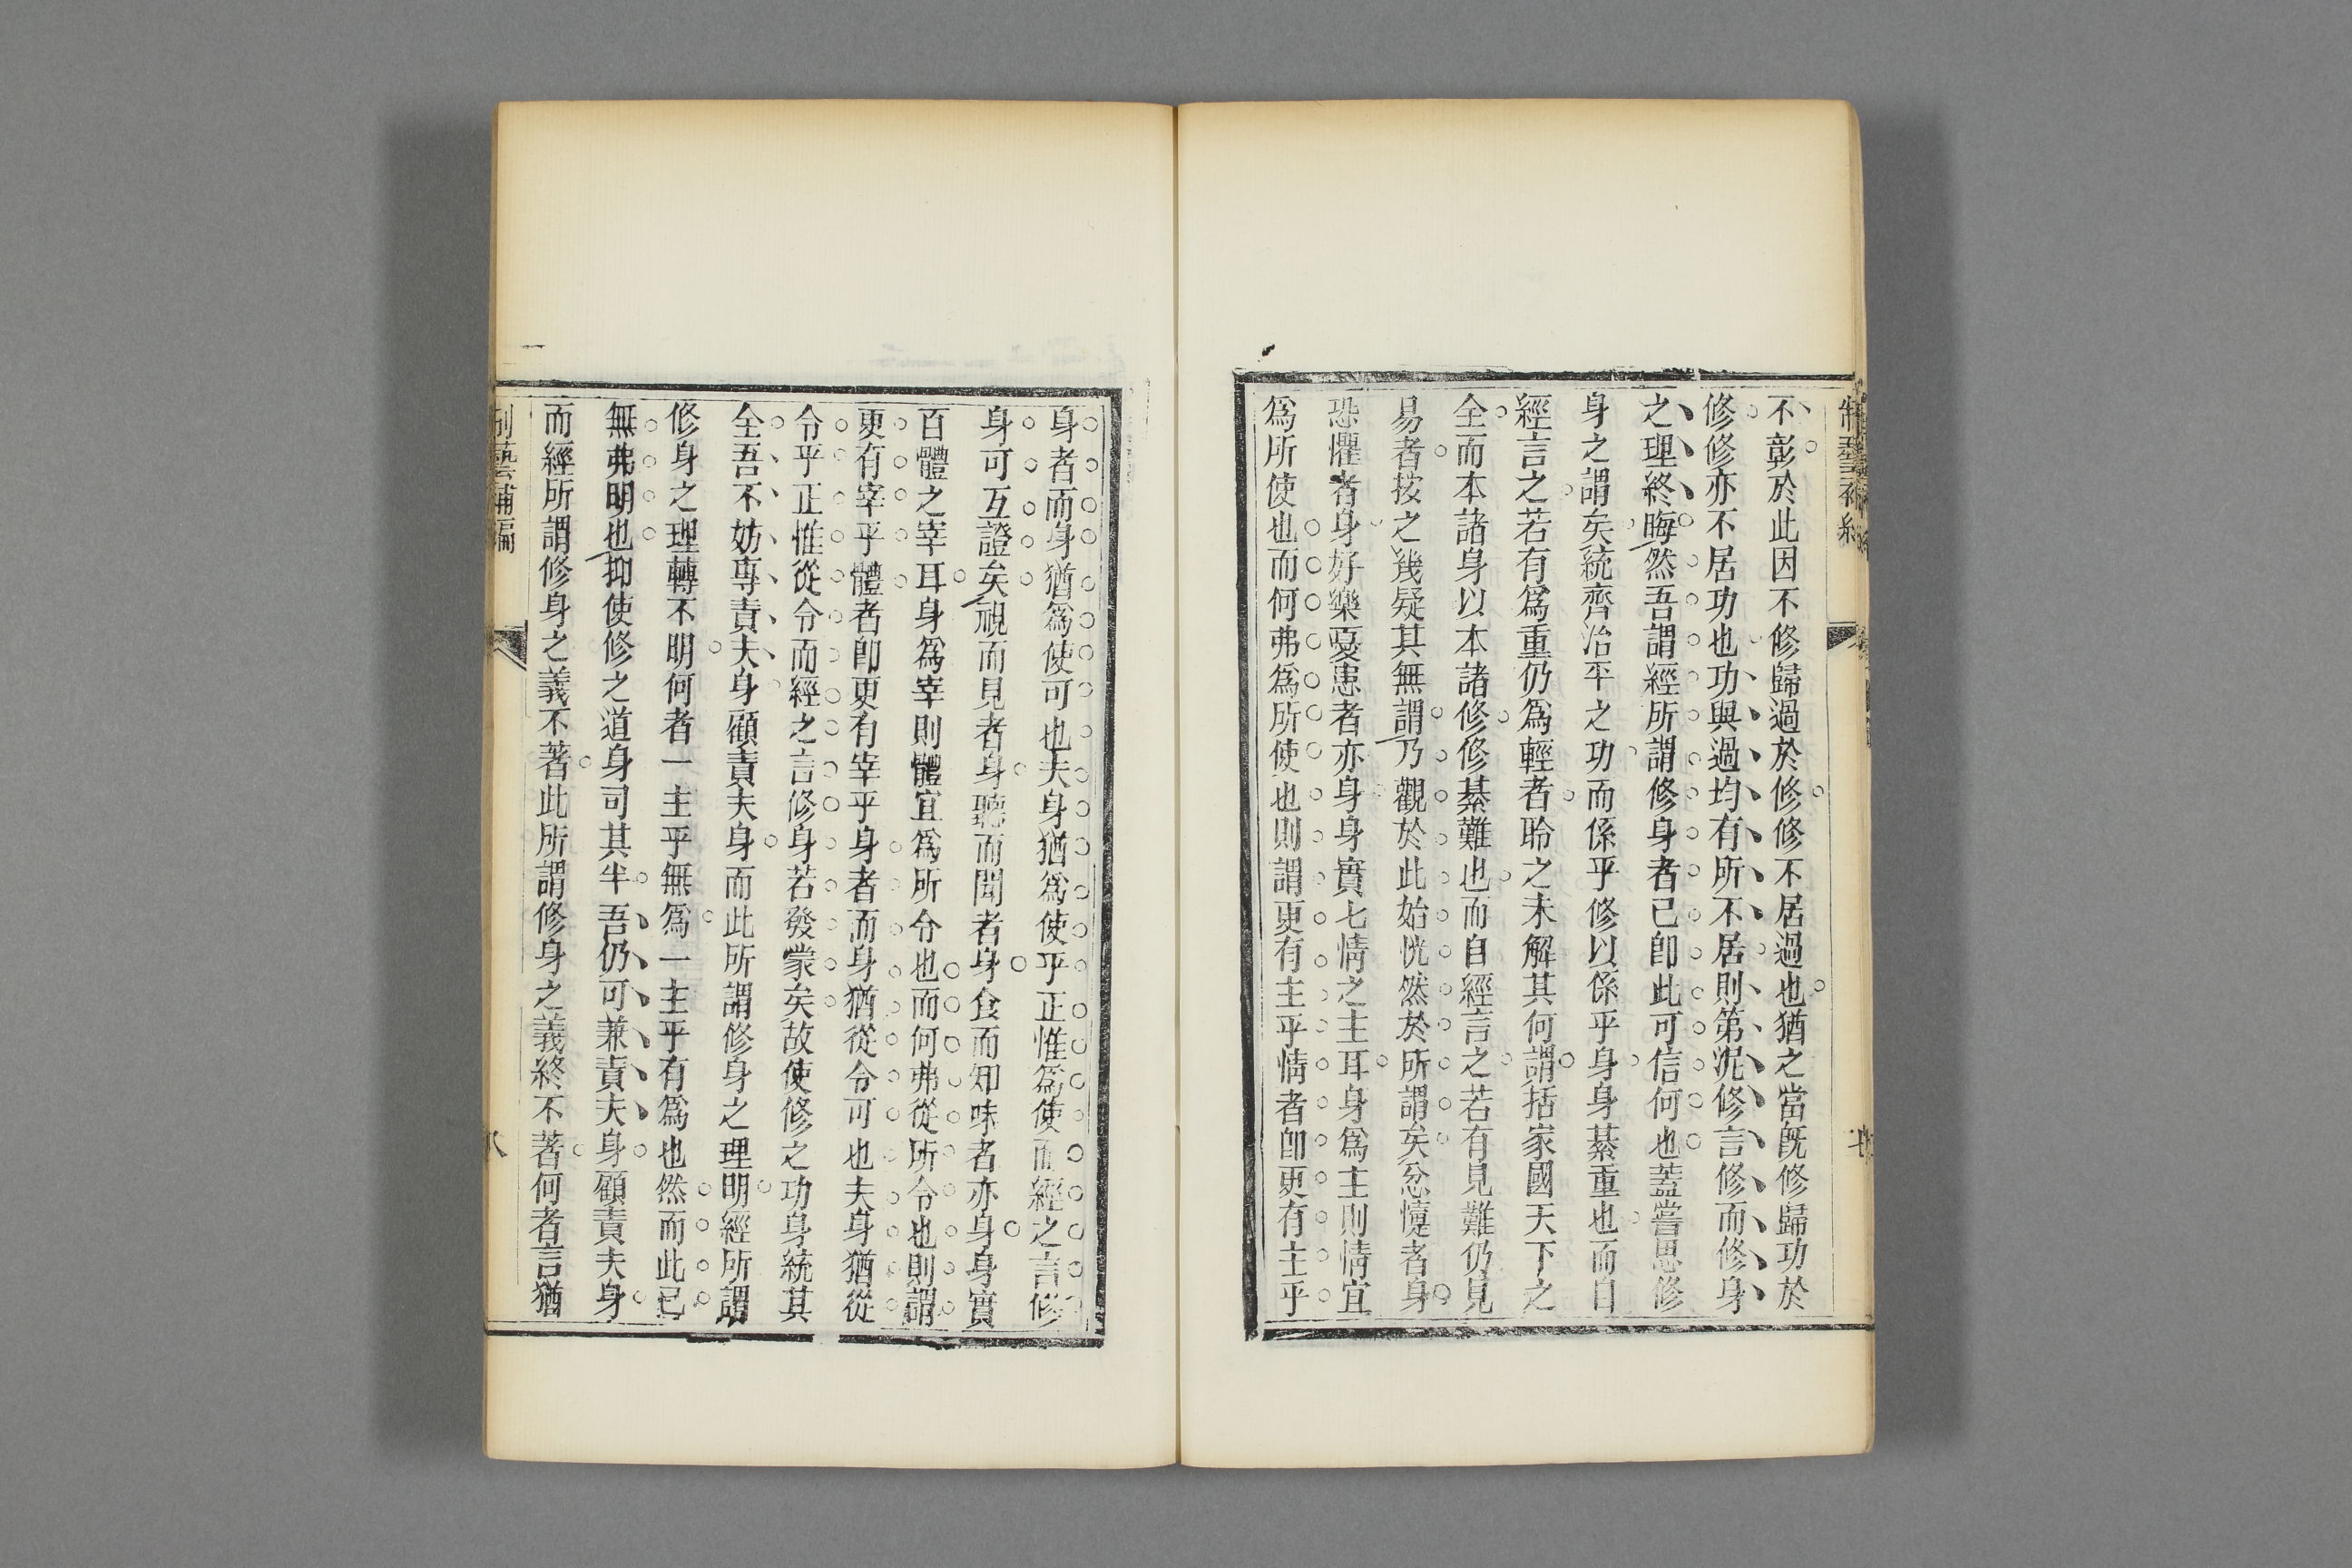 不彰於此因不修歸過於修修不居過也猶之當旣修歸功於
修修亦不居功也功與過均有所不居則第泥修言修而修身
之理終晦然吾謂經所謂修身者已卽此可信何也蓋嘗思修
身之謂矣統齊治平之功而係乎修以係乎身身綦重也而自
經言之若有爲重仍爲輕者聆之未解其何謂括家國天下之
全而本諸身以本諸修修綦難也而自經言之若有見難仍見
易者按之幾疑其無謂乃觀於此始恍然於所謂矣忿懥者身
恐懼者身好樂憂患者亦身身實七情之主耳身爲主則情宜
爲所使也而何弗爲所使也則謂更有主乎情者卽更有主乎
身者而身猶爲使可也夫身猶爲使乎正惟爲使而經之言修
身可互證矣視而見者身聽而聞者身食而知味者亦身身實
百體之宰耳身爲宰則體宜爲所令也而何弗從所令也則謂
更有宰乎體者卽更有宰乎身者而身猶從令可也夫身猶從
令乎正惟從令而經之言修身若發蒙矣故使修之功身統其
全吾不妨專責夫身顧責夫身而此所謂修身之理明經所謂
修身之理轉不明何者一主乎無爲一主乎有爲也然而此已
無弗明也抑使修之道身司其半吾仍可兼責夫身顧責夫身
而經所謂修身之義不著此所謂修身之義終不著何者言猶
制藝補編
八